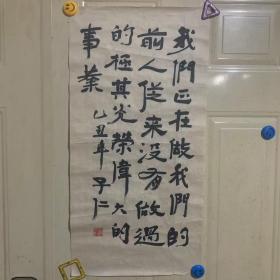 我們正在做我們的
前人從来没有做過
的極其光榮偉大的
事業
乙丑年 子仁